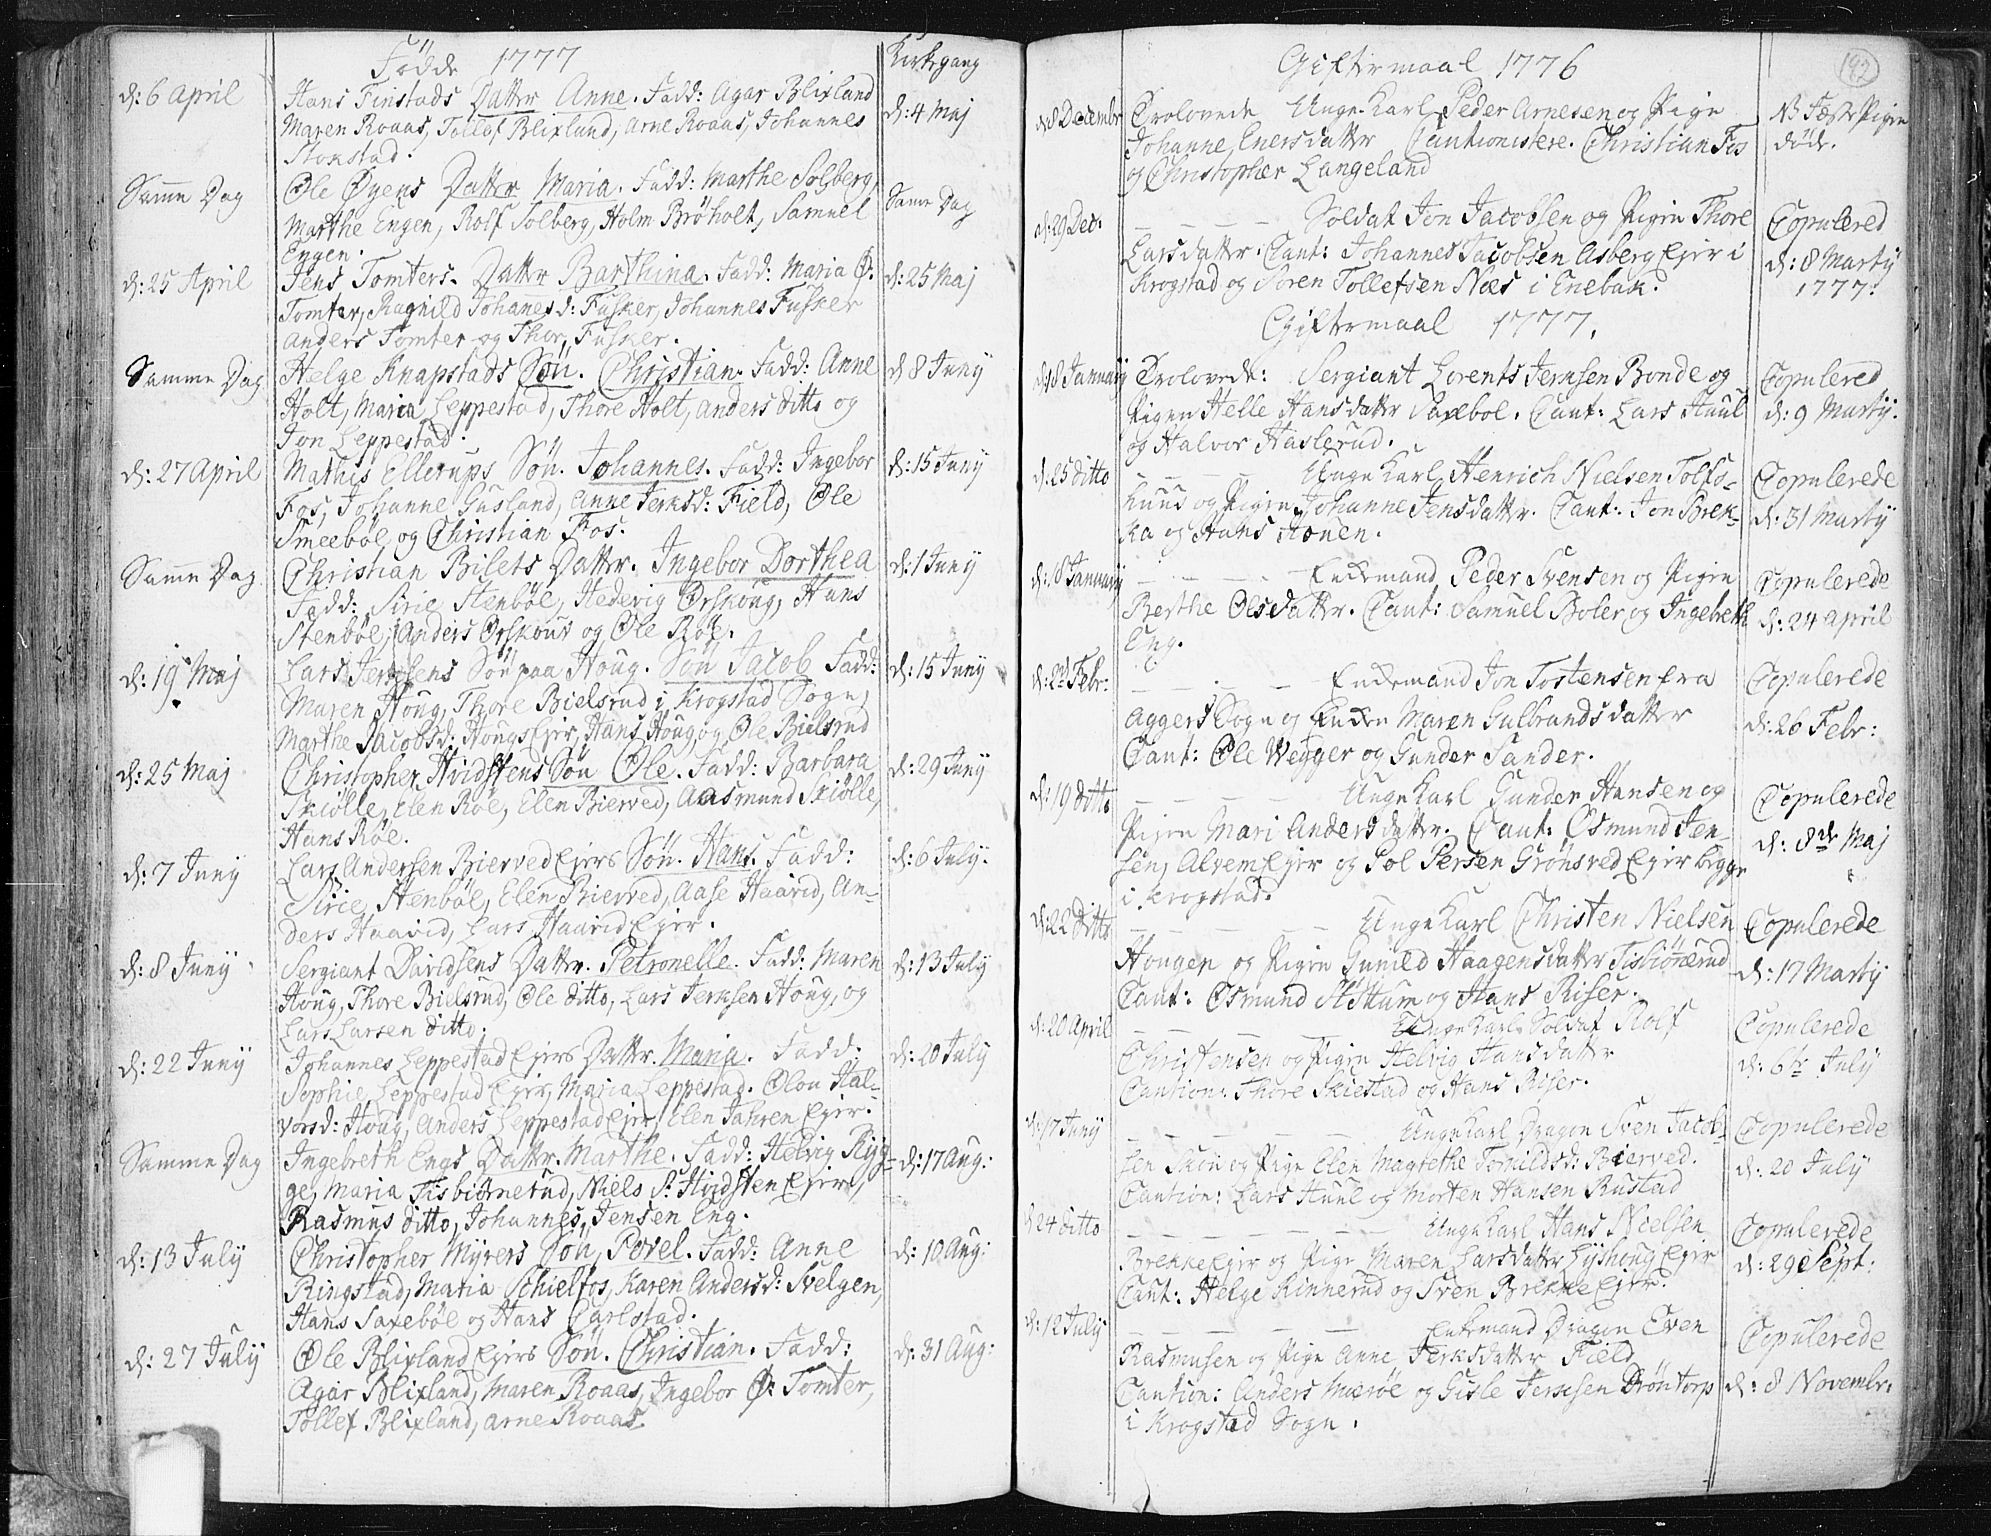 Födde 1777
Kirkegang
d: 6 April
Hans Finstads Datter Anne. Fadd: Agar Blixland
Maren Roaas, Tollef Blixlund, Arne Roaas, Johannes
Stokstad.
d: 4 Maj
Samme Dag
Ole Øyens Datter Maria. Fadd: Marthe Solberg,
Marthe Engen, Rolf Solberg, Holm Bröholt, Samuel
Engen.
Samme Dag
d: 25 April
Jens Tomters Datter Barthina. Fadd: Maria Ø:
Tomter, Ragnild Johanesd: Fusker, Johannes Fusker
Anders Tomter og Thor Fusker.
d: 25 Maj
Samme Dag
Helge Knapstads Søn. Christian. Fadd: Anne
Holt, Maria Leppestad, Thore Holt, Anders ditto og
Jon Leppestad.
d 8 Juny
d: 27 April
Mathis Ellerups Søn. Johannes. Fadd: Ingebor
Fos, Johanne Gusland, Anne Jerksd: Field, Ole
Smeeböl og Christian Fos.
d: 15 Juny
Samme Dag
Christian Bilets Datter. Ingebor Dorthea
Fadd: Sirie Stenböl, Hedevig Ørskoug, Hans
Stenböl, Anders Ørskous og Ole Röe.
d: 1 Juny
d: 19 Maj
Lars Jensens Søn paa Houg. Søn Jacob Fadd:
Maren Houg, Thore Bielsrud i Krogstad Sogn,
Marthe Jacobsd: Hougs Ejer, Hans Houg og Ole Bielsrud
d: 15 Juny
d: 25 Maj
Christopher Hvidstens Søn Ole. Fadd: Barbara
Skiölle, Elen Röe, Elen Bierved, Aasmund Skiölle,
Hans Röe.
d: 29 Juny
d: 7 Juny
Lars Andersen Bierved Ejers Søn. Hans. Fadd:
Sirie Stenböl, Elen Bierved, Aase Haavid, An-
ders Haavid, Lars Haavid Ejer.
d: 6 July.
d: 8 Juny
Sergiant Davidsens Datter. Petronelle. Fadd: Maren
Houg, Thore Bielsrud, Ole ditto, Lars Jerksen Houg, og
Lars Larsen ditto.
d: 13 July
d: 22 Juny
Johannes Leppestad Ejers Datter. Maria. Fadd:
Sophie Leppestad Ejer, Maria Leppestad. Olou Hal-
vorsd: Houg, Anders Leppestad Ejer, Elen Jahren Ejer.
d: 20 July
Samme Dag
Ingebreth Engs Datter. Marthe. Fadd: Helvig Ryg-
ge, Maria Tisbiörnerud, Niels P: Hvidsten Ejer,
Rasmus ditto, Johannes Jensen Eng.
d: 17 Aug:
d: 13 July
Christopher Myrers Søn, Povel. Fadd: Anne
Ringstad, Maria Schielfos, Karen Andersd: Svelgen,
Hans Saxeböl og Hans Carlstad.
d: 10 Aug:
d: 27 July
Ole Blixland Ejers Søn. Christian. Fadd:
Agar Blixland, Maren Roaas, Ingebor Ø: Tomter,
Tollef Blixland, Arne Roaas.
d: 31 Aug:
192
Giftermaal 1776
d: 8 Decembr
Trolovede Unge Karl Peder Arnesen og Pige
Johanne Enersdatter Cautionistere. Christian Fos
og Christopher Langeland
NB Fæste Pigen
döde.
d: 29 Dec.
Soldat Jon Jacobsen og Pigen Thore
Larsdatter. Caut: Johannes Jacobsen Asberg Ejer i
Krogstad og Sören Tollefsen Næs i Enebak.
Copulered
d: 8 Marty
1777.
Giftermaal 1777.
d: 8 January
Trolovede: Sergiant Lorents Jensen Bonde og
Pigen Helle Hansdatter Saxebol. Caut: Lars Huul
og Halvor Haslerud.
Copulered
d: 9 Marty.
d: 25 ditto
Unge Karl Henrich Nielsen Tolfs-
huud og Pigen Johanne Jensdatter. Caut: Jon Brek-
ka og Hans Honen.
Copulerede
d: 31 Marty
d: 18 January
Enkemand Peder Svensen og Pigen
Berthe Olsdatter. Caut: Samuel Boler og Ingebreth
Eng.
Copulerede
d: 24 April
d: 2d Febr:
Enkemand Jon Tostensen fra
Aggers Sogn og Enken Maren Gulbrandsdatter
Caut: Ole Wegger og Gunder Sander.
Copulerede
d: 26 Febr:
d: 19 ditto
Unge Karl Gunder Hansen og
Pigen Mari Andersdatter. Caut: Osmund Jen-
sen, Alvem Ejer og Pol Persen Grönsved Ejer bigge
i Krogstad.
Copulerede
d: 8de Maj
d: 22 Ditto
Unge Karl Christen Nielsen
Hougen og Pigen Gunild Haagensdatter Tisbiönerud
Caut: Osmund Huum og Hans Riser.
Copulerede
d: 17 Marty
d: 20 April
Unge Karl Soldat Rolf
Christensen og Pigen Helvig Hansdatter
Caution: Thore Skiestad og Hans Riser.
Copulerede
d: 6te July
d: 17 Juny
Unge Karl Dragon Sven Jacob-
sen Skou og Pige Elen Magrethe Tomildsd: Bierved.
Caution: Lars Huul og Morten Hansen Rustad
Copulerede
d: 20 July
d 24 ditto
Unge Karl Hans Nielsen
Brekke Ejer og Pige Maren Larsdatter Lyshoug Ejer
Caut: Helge Kinnerud og Sven Brekke Ejer.
Copulerede
d: 29 Sept:
d: 12 July
Enkemand Dragon Even
Rasmusen og Pige Anne Jerksdatter Field
Caution: Anders Mæröe og Gisle Jensen Dröntorp
i Krogstad Sogn.
Copulerede
d: 8 Novembr: